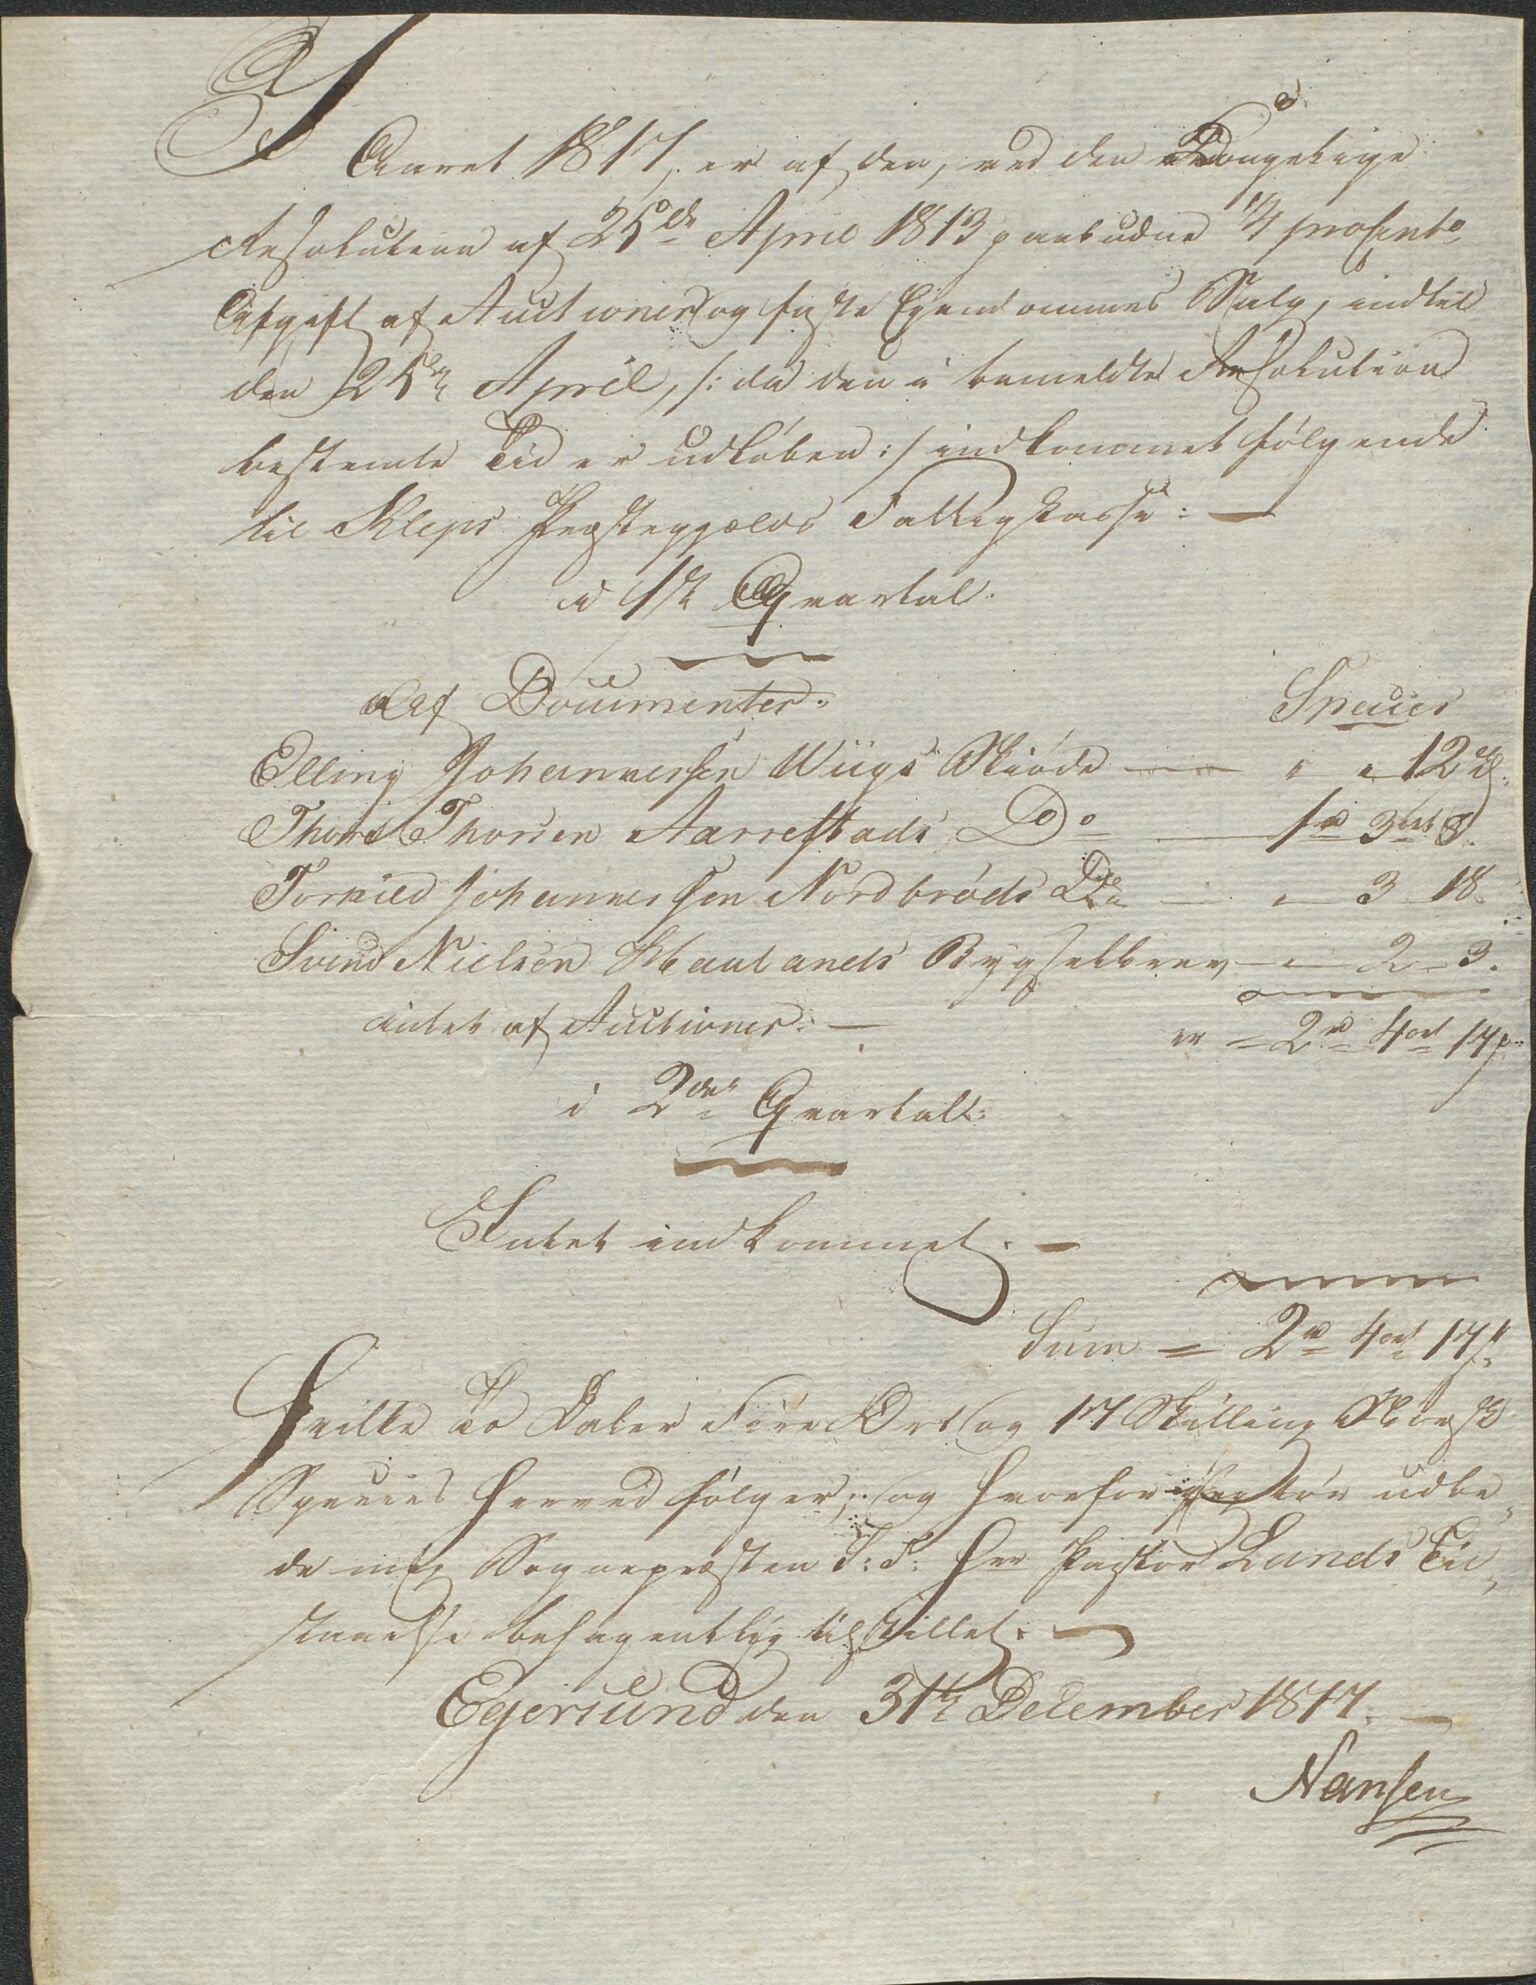 I
Aaret 1817, er af den, ved den Kongelige
Resolution af 25de April 1813 paabudne 1/4 procento
Afgift af Auctioner og faste Ejendommes Salg, indtil
den 25de April, /: da den i bemeldte Resolution
bestemte Tid er udløben :/ indkommet følgende
til Kleps Præstegjælds Fattigkasse: —
i 1te Qvartal.
Af Documenter:
Species
Elling Johannessen Wiigs Skiøde — " " 12 ß.
Thore Thorsen Aarrestads Do — 1 3 ort 8.
Torkild Johannessen Nordbrøds Do — " 3 18.
Svend Nielsen Haulands Bygselbrev — " 2 3.
intet af Auctioner. —
er = 2 4 ort 17 ß
i 2det Qvartal:
Intet indkommet. —
Sum = 2 4 ort 17 ß.
hvilke To Daler Fire Ort og 17 Skilling Norsk
Species herved følger; og hvorfor jeg tør udbe-
de mig Sognepræsten S: T: Hr Pastor Lunds Til-
staaelse behagentlig tilstillet. —
Egersund den 31te December 1817. —
Nansen